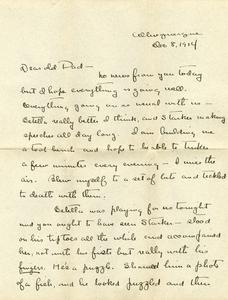 Albuquerque
Dec. 8, 1914
Dear old Dad—
No news from you today
but I hope everything is going well.
Everything going on as usual with us—
Estella really better I think, and Starker making
speeches all day long. I am building me
a tool bench and hope to be able to tinker
a few minutes every evening— I miss the
air. Blew myself to a set of bits and tickled
to death with them.
Estella was playing for me tonight
and you ought to have seen Starker— stood
on his tiptoes all the while and accompanied
her, not with his fists but really with his
fingers. He's a puzzle. Showed him a photo
of a fish, and he looked puzzled and then